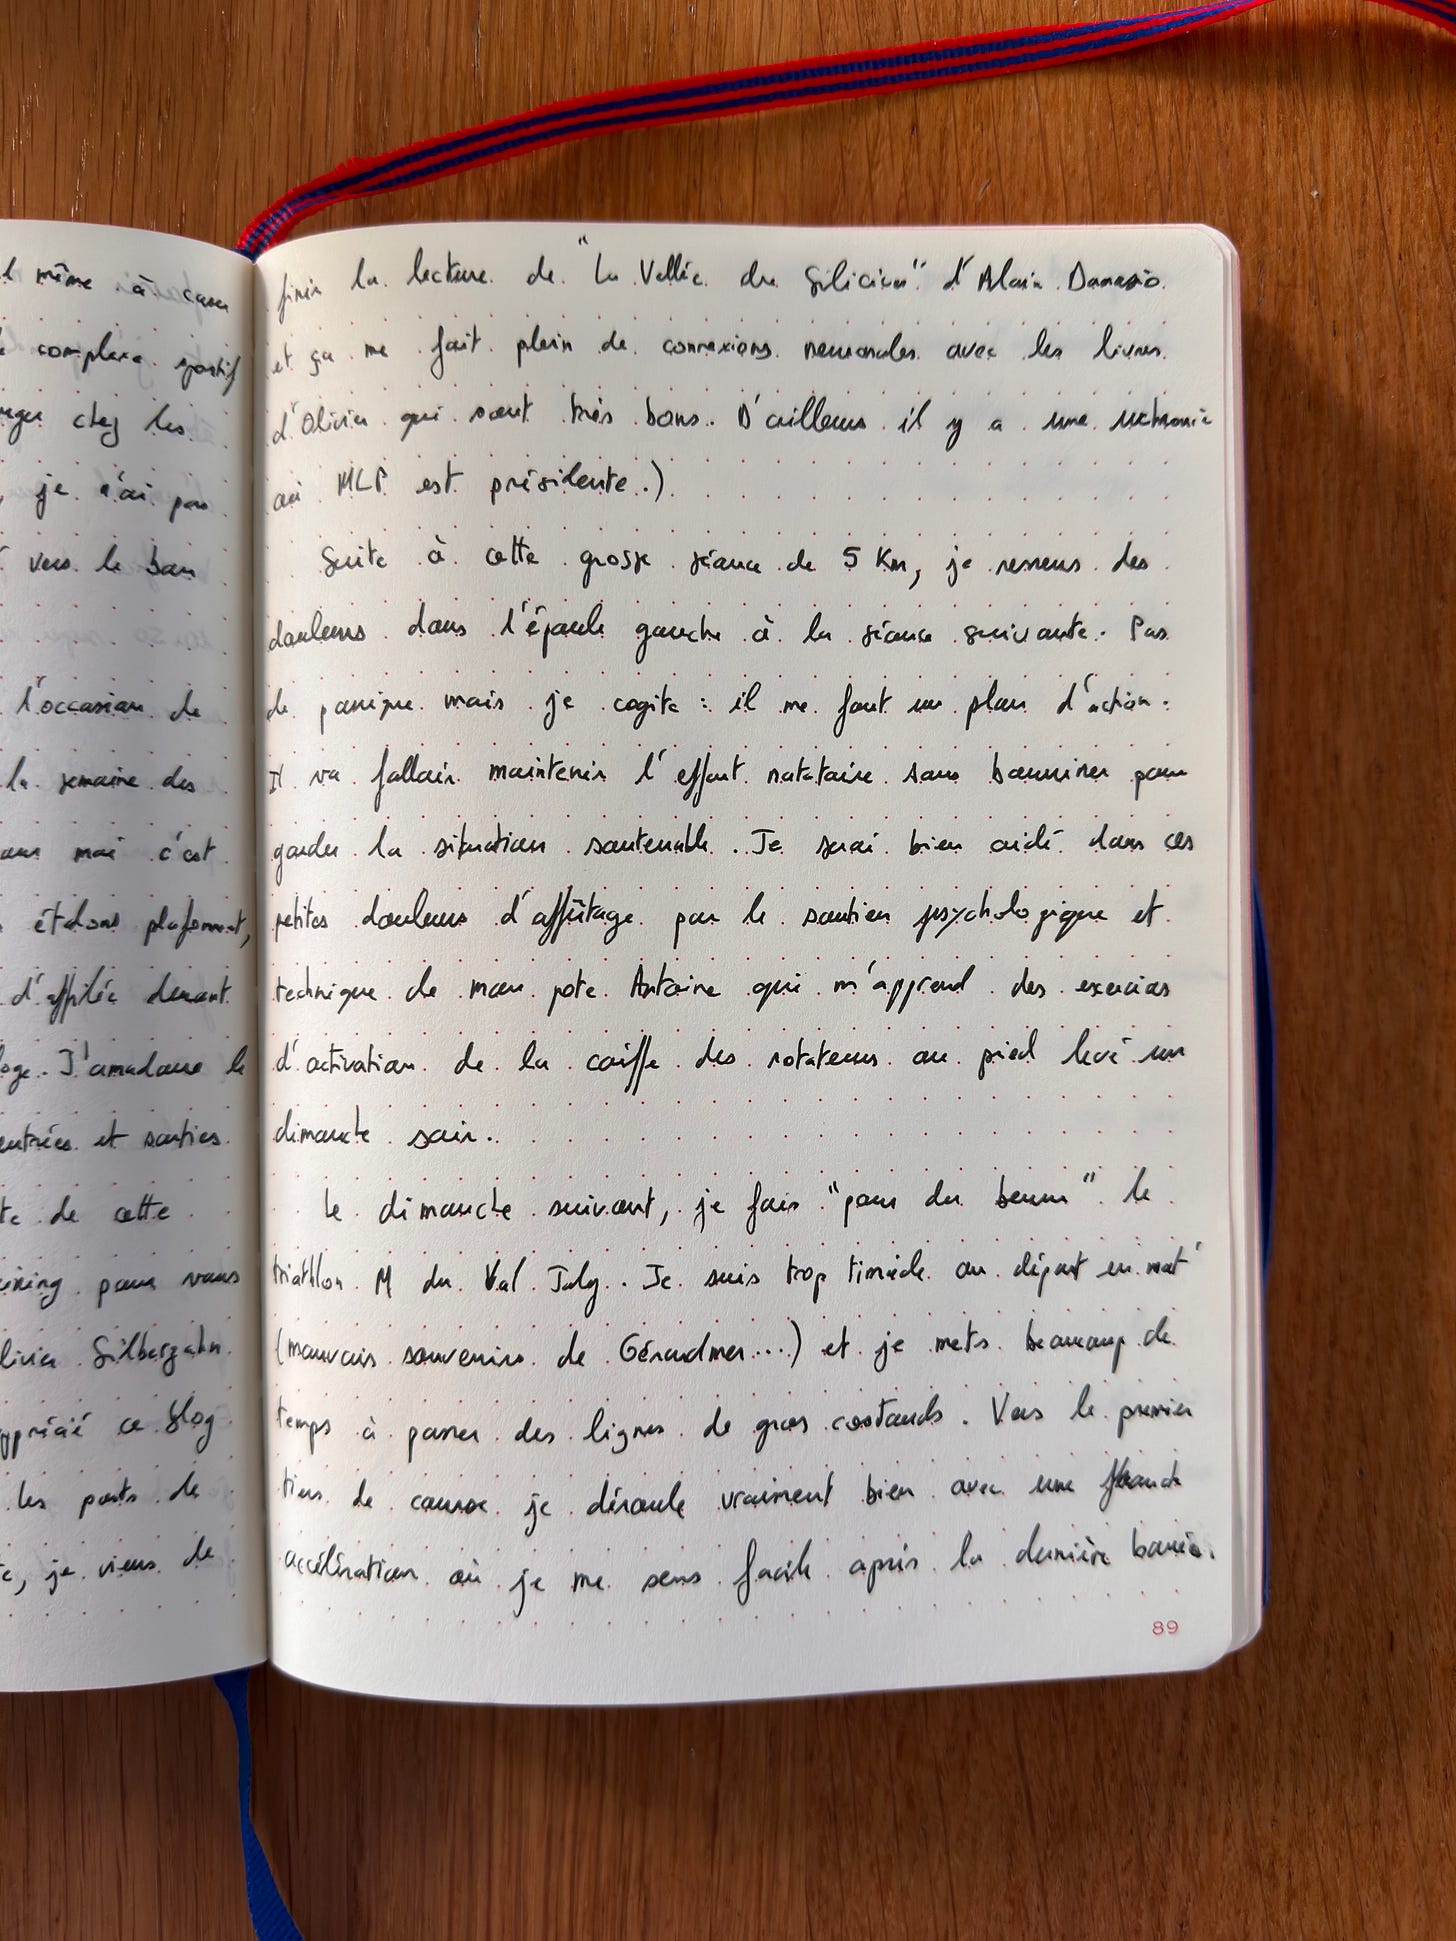 l même à caser
complexe sportif
chez les
, je n'ai pas
vers le bon
l'occasion de
la semaine des
moi c'est
étalons plafonnent,
d'affilée devant
J'amadoue le
entrées et sorties
de cette
pour vous
Olivier Silberzahn
apprécié ce blog
les posts de
, je viens de
finir la lecture de "La Vallée du Silicium" d'Alain Damasio
et ça me fait plein de connexions neuronales avec les livres
d'Olivier qui sont très bons. D'ailleurs il y a une uchronie
où MLP est présidente.)
Suite à cette grosse séance de 5 Km, je ressens des
douleurs dans l'épaule gauche à la séance suivante. Pas
de panique mais je cogite : il me faut un plan d'action.
Il va falloir maintenir l'effort natatoire sans bourriner pour
garder la situation soutenable. Je serai bien aidé dans ces
petites douleurs d'affûtage par le soutien psychologique et
technique de mon pote Antoine qui m'apprend des exercices
d'activation de la coiffe des rotateurs au pied levé un
dimanche soir.
Le dimanche suivant, je fais "pour du beurre" le
triathlon M du Val Joly. Je suis trop timide au départ en nat'
(mauvais souvenirs de Gérardmer...) et je mets beaucoup de
temps à passer des lignes de gros costauds. Vers le premier
tiers de course je déroule vraiment bien avec une franche
accélération où je me sens facile après la dernière bouée.
89